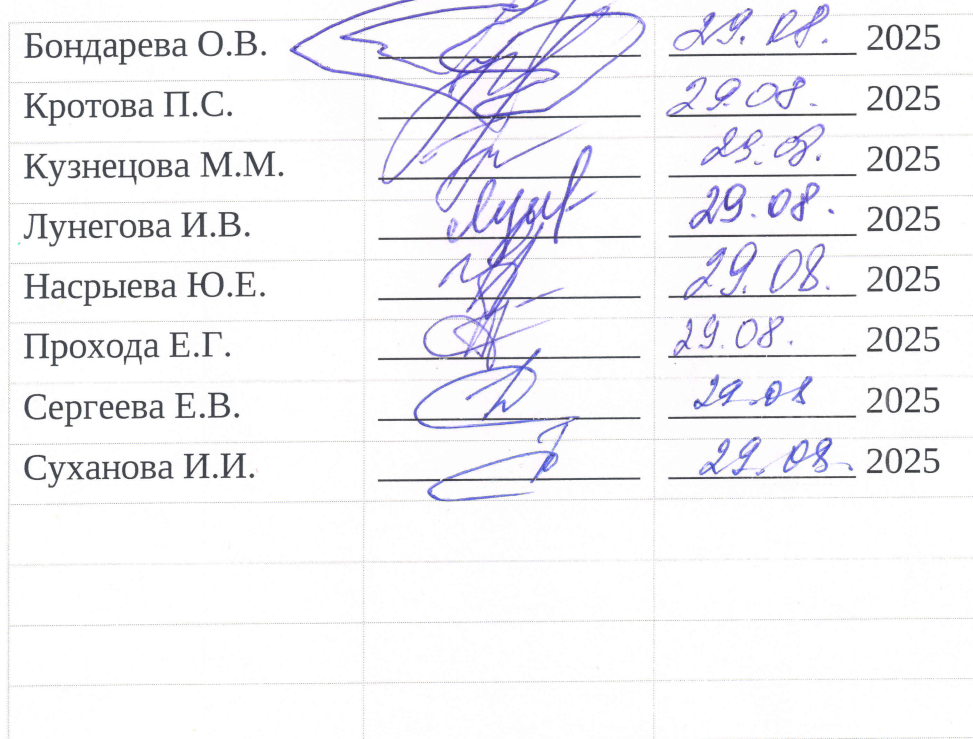 Бондарева О.В. 29.08. 2025
Кротова П.С. 29.08. 2025
Кузнецова М.М. 29.08. 2025
Лунегова И.В. 29.08. 2025
Насрыева Ю.Е. 29.08. 2025
Прохода Е.Г. 29.08. 2025
Сергеева Е.В. 29.08 2025
Суханова И.И. 29.08. 2025